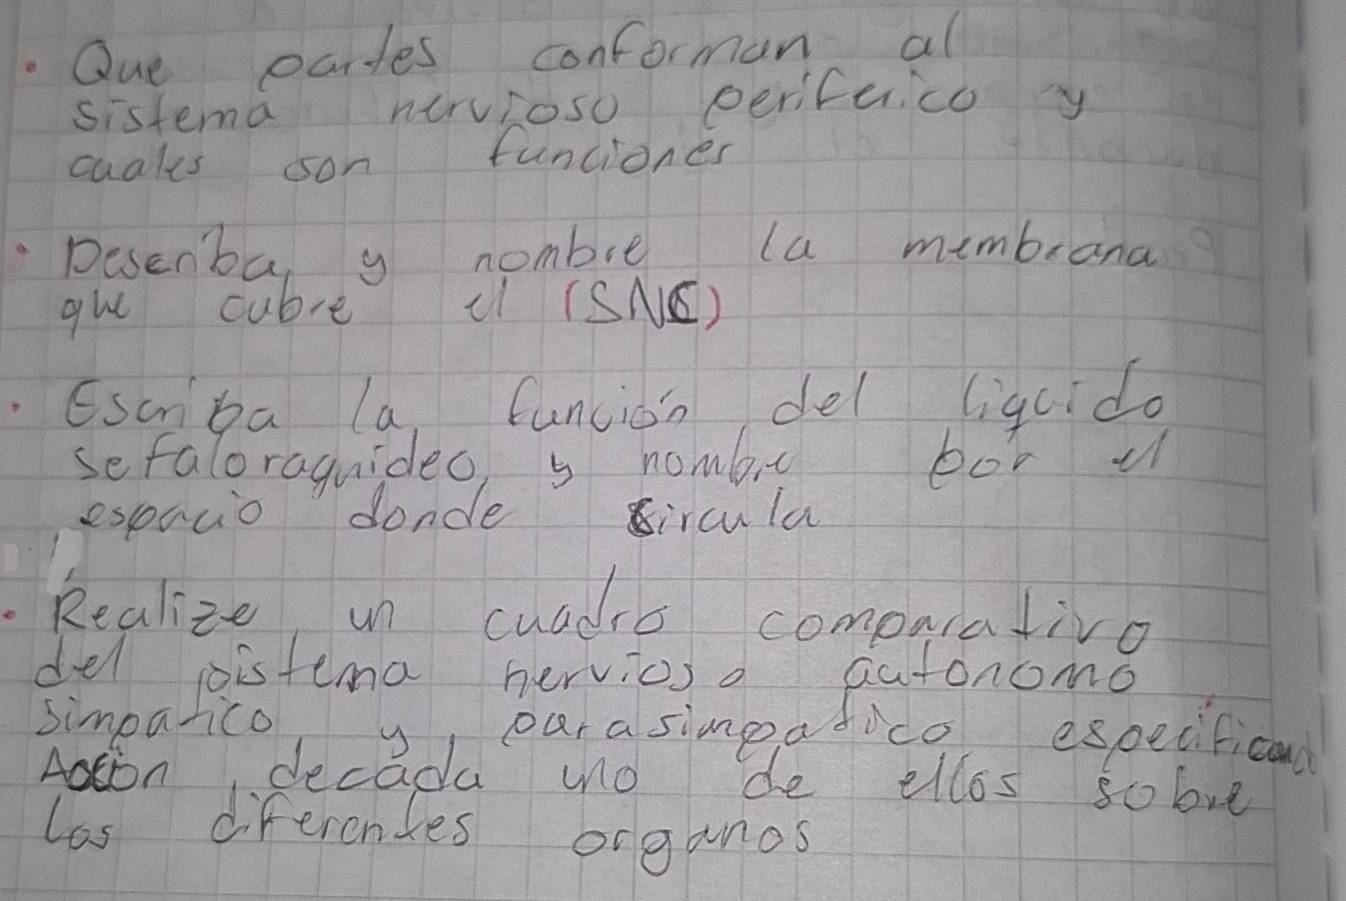 • Que partes conforman al
sistema nervioso periferico y
cuales son funciones
• Describa y nombre la membrana
que cubre el (SNC)
• Escriba la función del liquido
sefaloraquideo, y nombre bor el
espacio donde sircula
• Realize un cuadro comparativo
del sistema nervioso autonomo
simpatico y parasimpatico especificand
Accion decada uno de ellos sobre
los diferentes organos